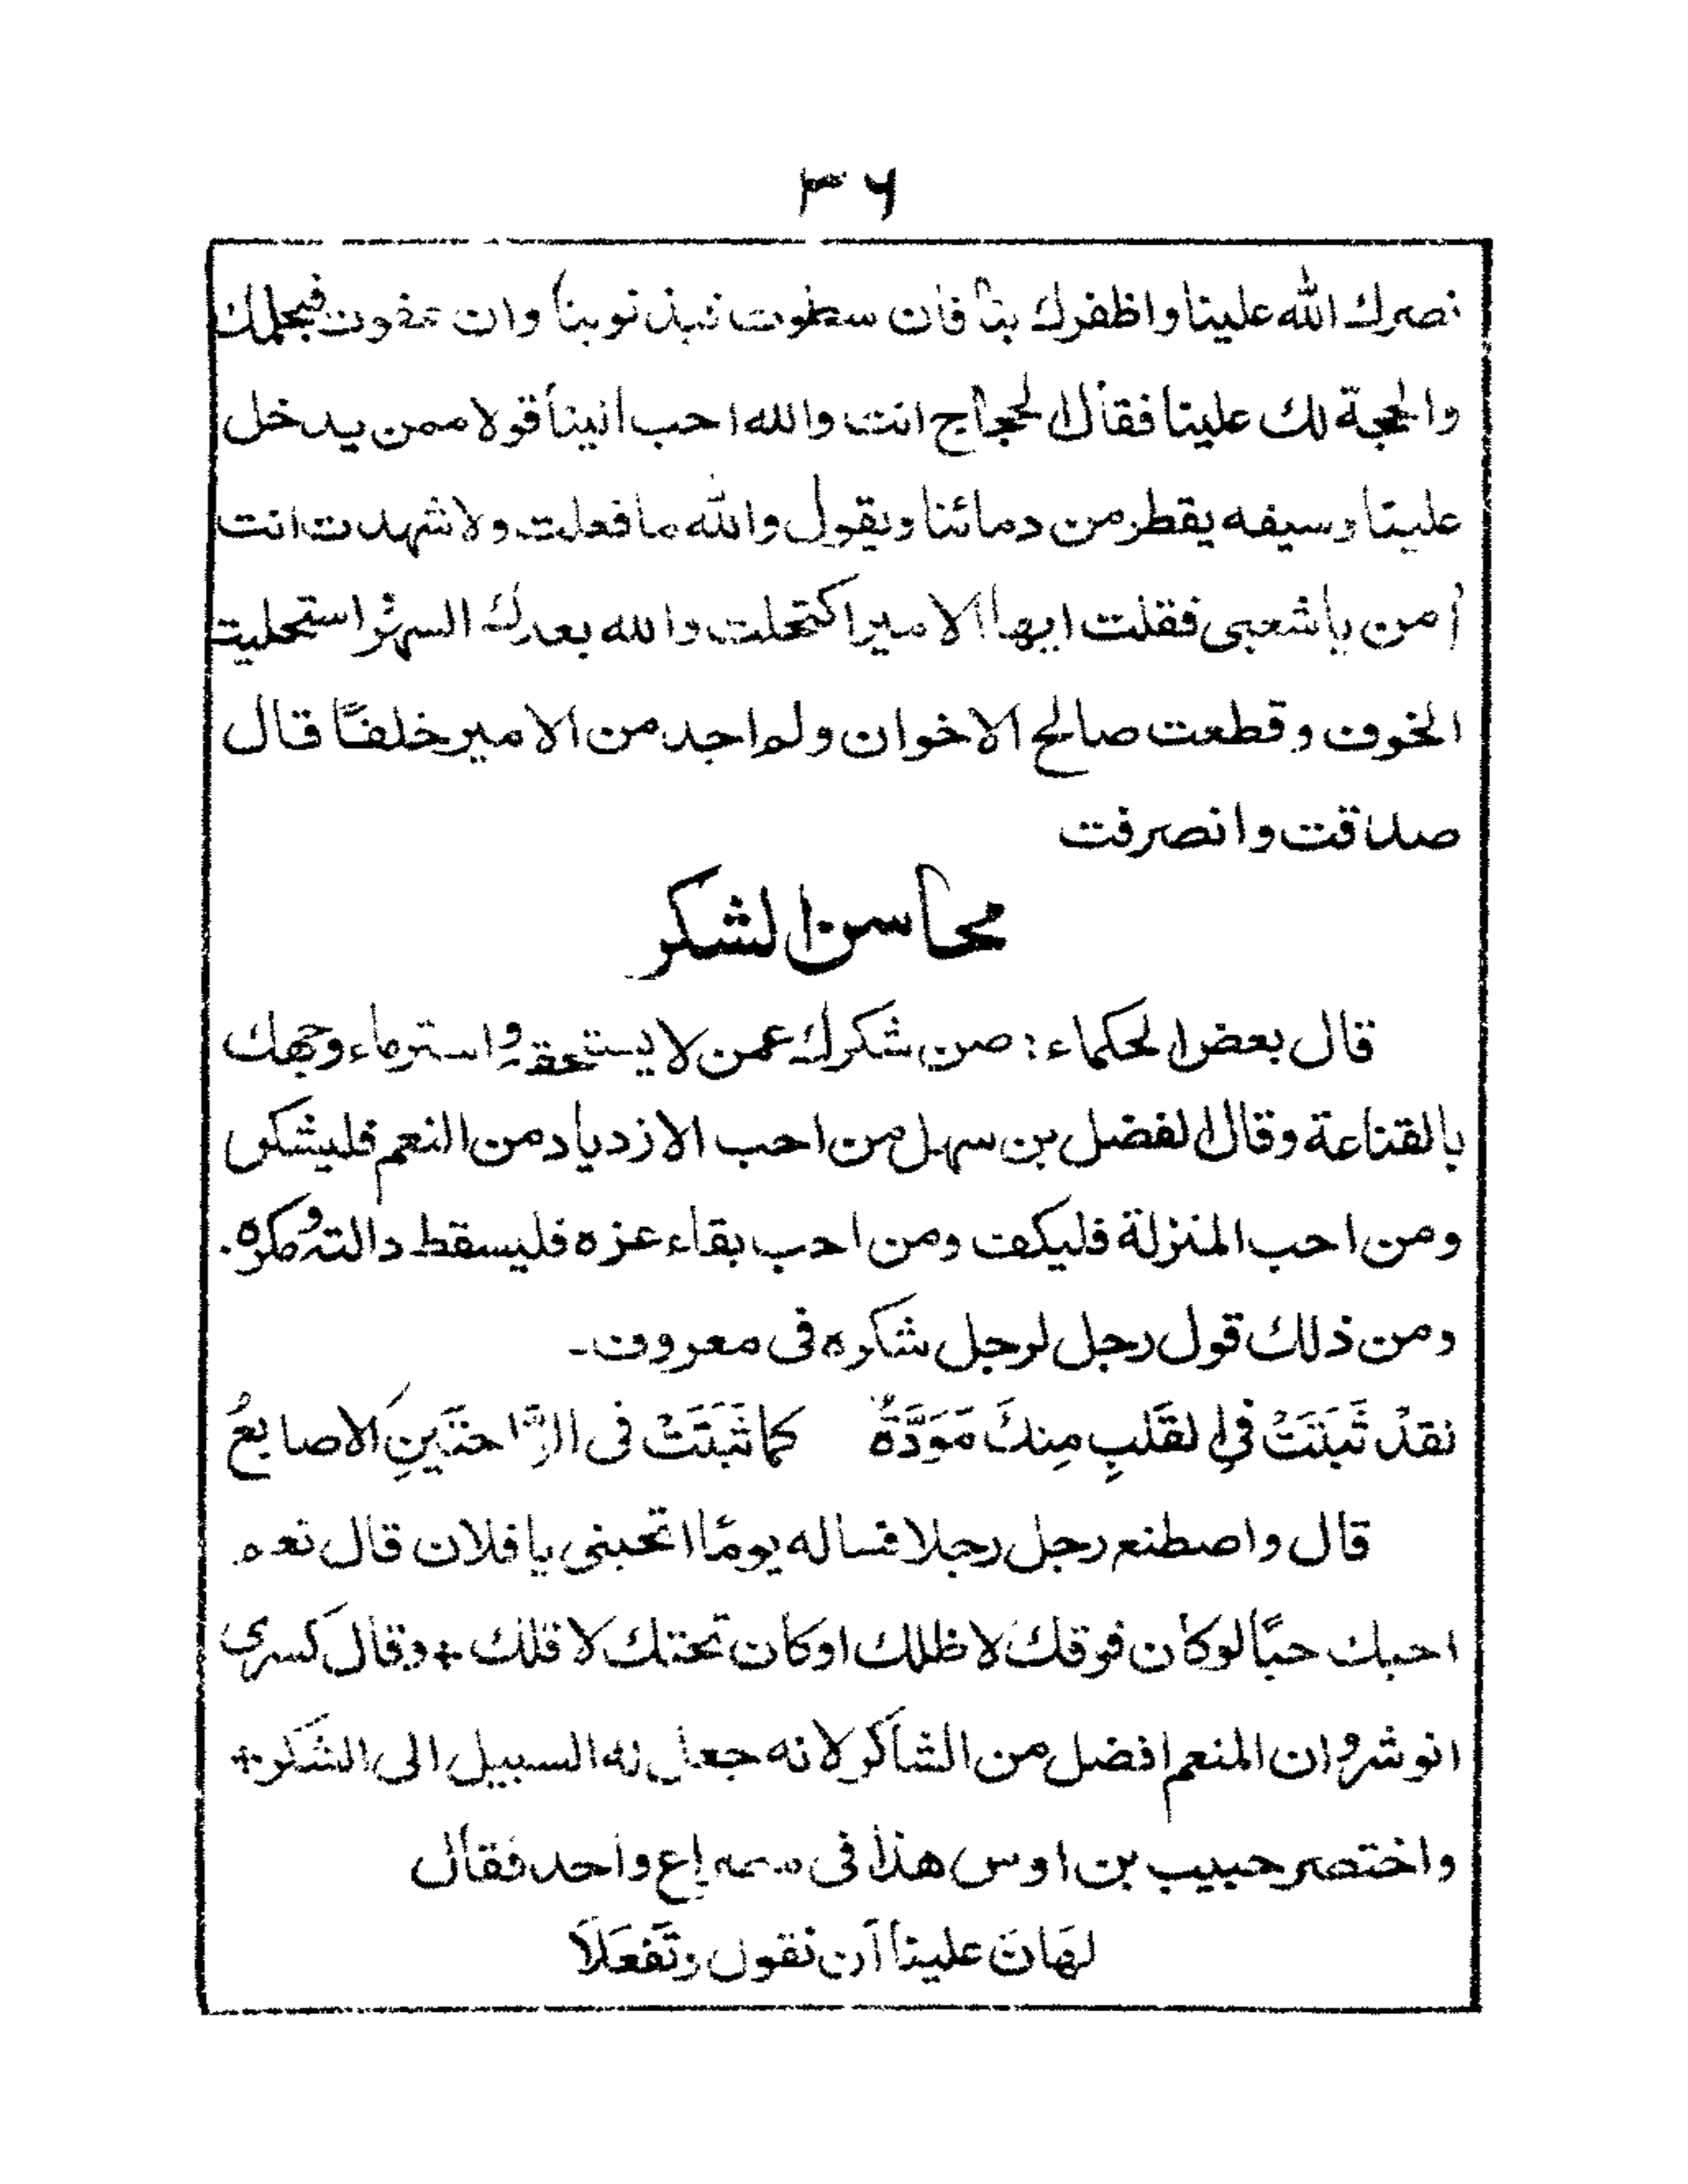 ٣٦
نصرك الله علينا واظفرك بنا فان سطوت فبذنوبنا وان عفوت فبحلمك
والحجة لك علينا فقال الحجاج انت والله احب الينا قولا ممن يدخل
علينا وسيفه يقطر من دمائنا ويقول والله ما فعلت ولا شهدت انت
آمن يا شعبى فقلت ايها الامير اكتحلت والله بعدك السهر واستحليت
الخوف وقطعت صالح الاخوان ولم اجد من الامير خلفًا قال
صدقت وانصرفت
محاسن الشكر
قال بعض الحكماء: صن شكرك عمن لا يستحقه واستر ماء وجهك
بالقناعة وقال الفضل بن سهل من احب الازدياد من النعم فليشكر
ومن احب المنزلة فليكف ومن احب بقاء عزه فليسقط دالته ومكره.
ومن ذلك قول رجل لرجل شكره فى معروف-
لقدْ ثَبَتَتْ فِى القَلبِ مِنكَ مَوَدَّةٌ كما ثَبَتَتْ فى الرَّاحتَينِ الاصابعُ
قال واصطنع رجل رجلا فساله يومًا اتحبنى يا فلان قال نعم
احبك حبًا لو كان فوقك لاظلك او كان تحتك لاقلك + وقال كسرى
انوشروان المنعم افضل من الشاكر لانه جعل له السبيل الى الشكر +
واختصر حبيب بن اوس هذا فى مصراع واحد فقال
لهَانَ علينا أن نقول وتَفعَلَا